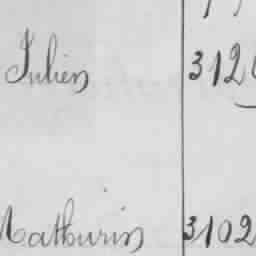 Julien 312
Mathurin 3102